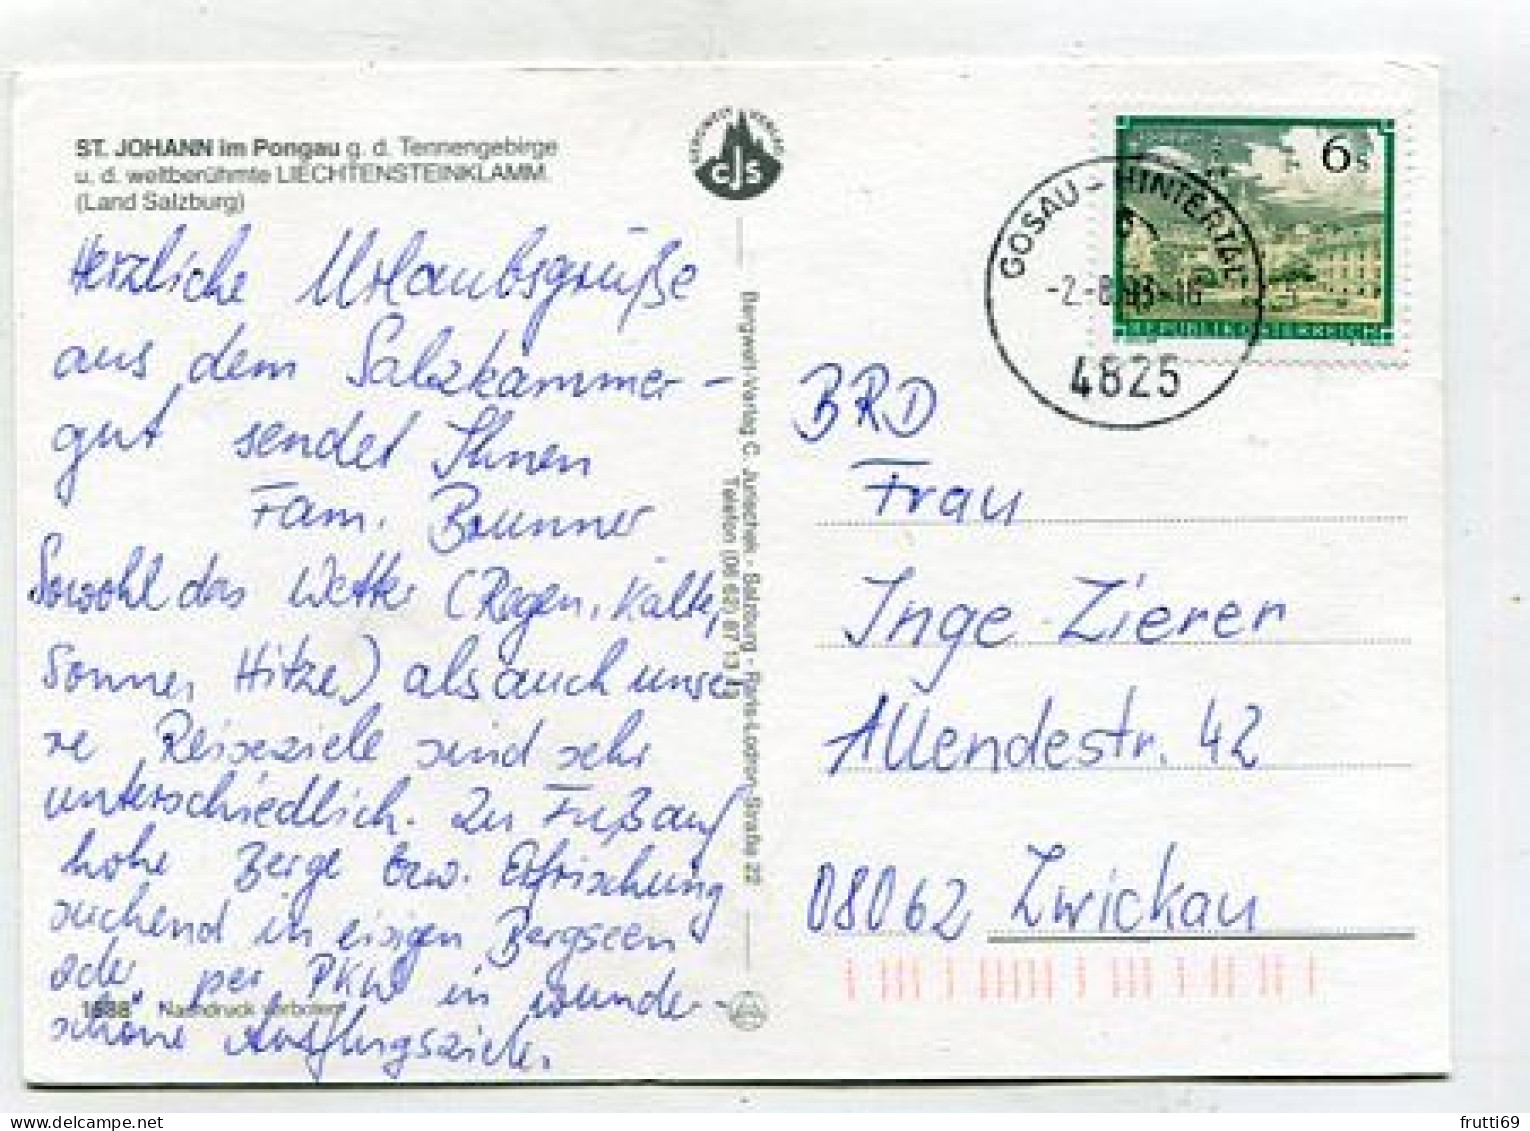 ST. JOHANN im Pongau g. d. Tennengebirge
u. d. weltberühmte LIECHTENSTEINKLAMM.
(Land Salzburg)
Herzliche Urlaubsgrüße
aus dem Salzkammer-
gut sendet Ihnen
Fam. Brunner
Sowohl das Wetter (Regen, Kälte,
Sonne, Hitze) als auch unse-
re Reiseziele sind sehr
unterschiedlich. Zu Fuß auf
hohe Berge bzw. Erfrischung
suchend in eisigen Bergseen
oder per PKW in wunder-
schöne Ausflugsziele.
1688 Nachdruck verboten!
CJS
Bergwelt-Verlag C. Jurischek - Salzburg - Paris-Lodron-Straße 22
Telefon (06 62) 87 13
6 S
REPUBLIK ÖSTERREICH
GOSAU-HINTERTAL
-2.-8.93-16
4825
BRD
Frau
Inge Zierer
Allendestr. 42
08062 Zwickau
frutti69